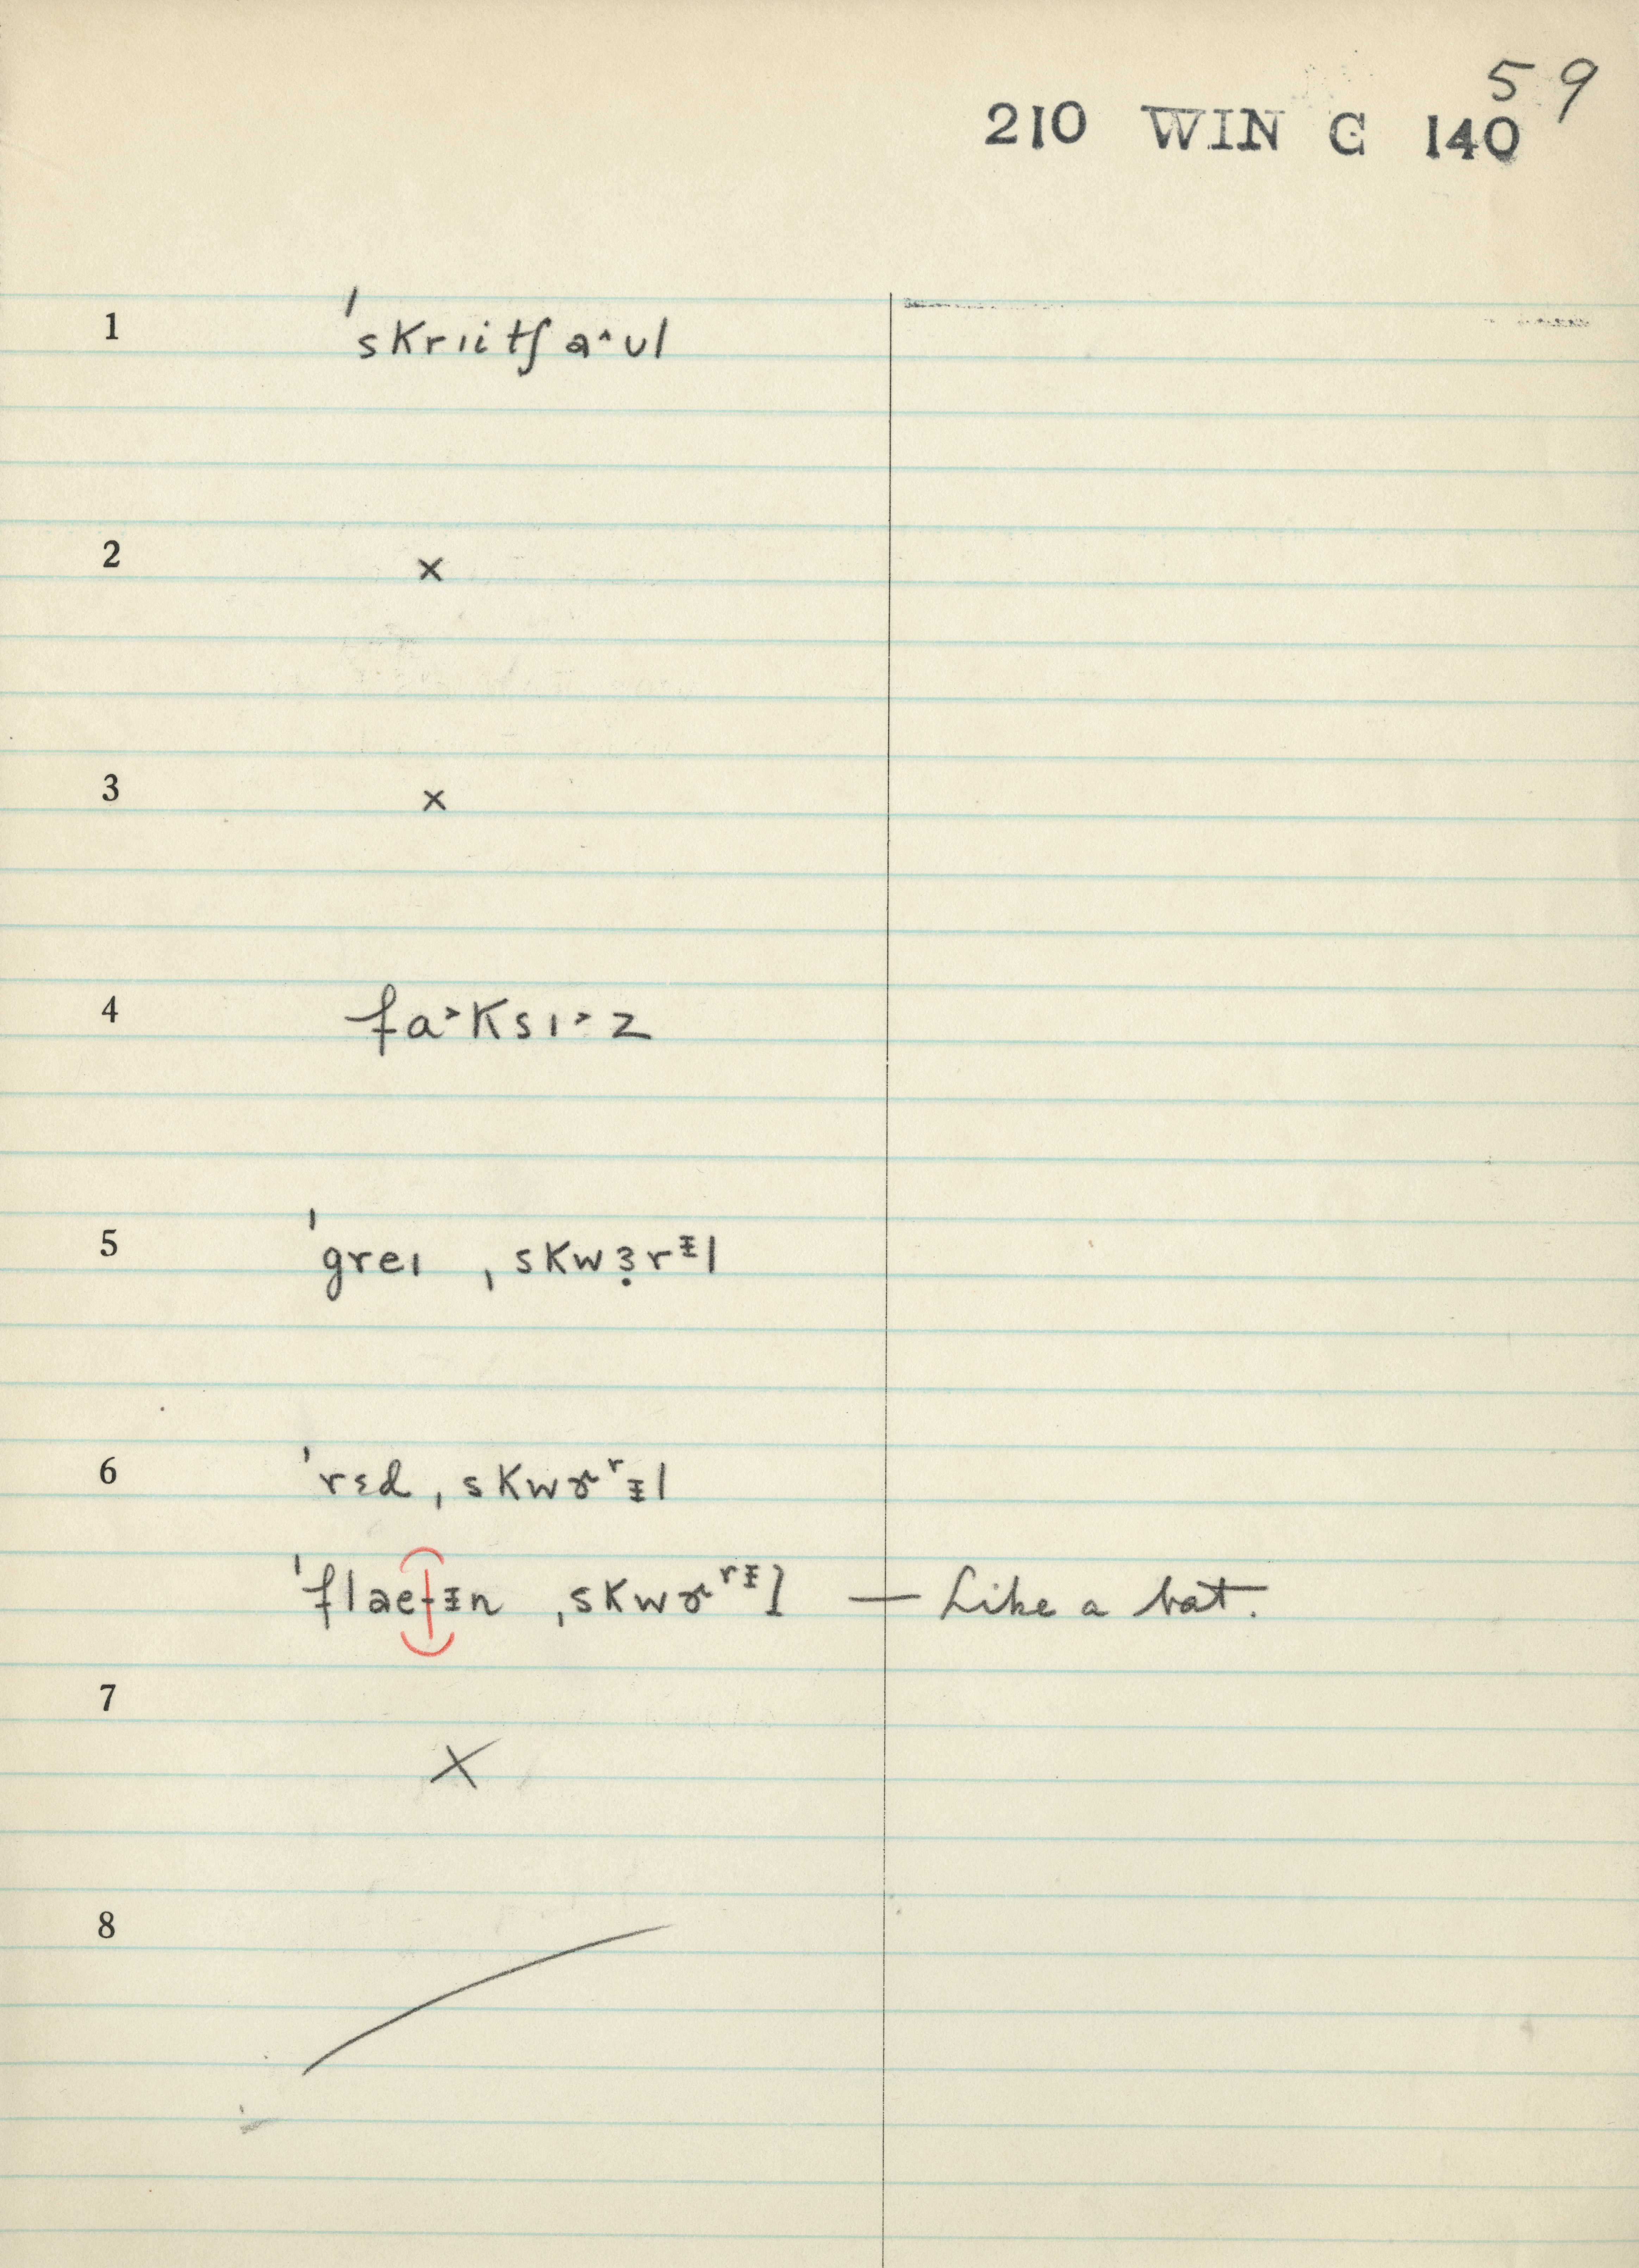 59
210 WIN C 140
1 ˈskrɪitʃ a˄ʊl
2 ×
3 ×
4 fa˃ksɪ˃z
5 ˈgreɪ ˌskwɜ̣rᵻl
6 ˈrɛd ˌskwɚʳᵻl
ˈflaeᵻn ˌskwɚʳᵻl — Like a bat.
7 ×
8